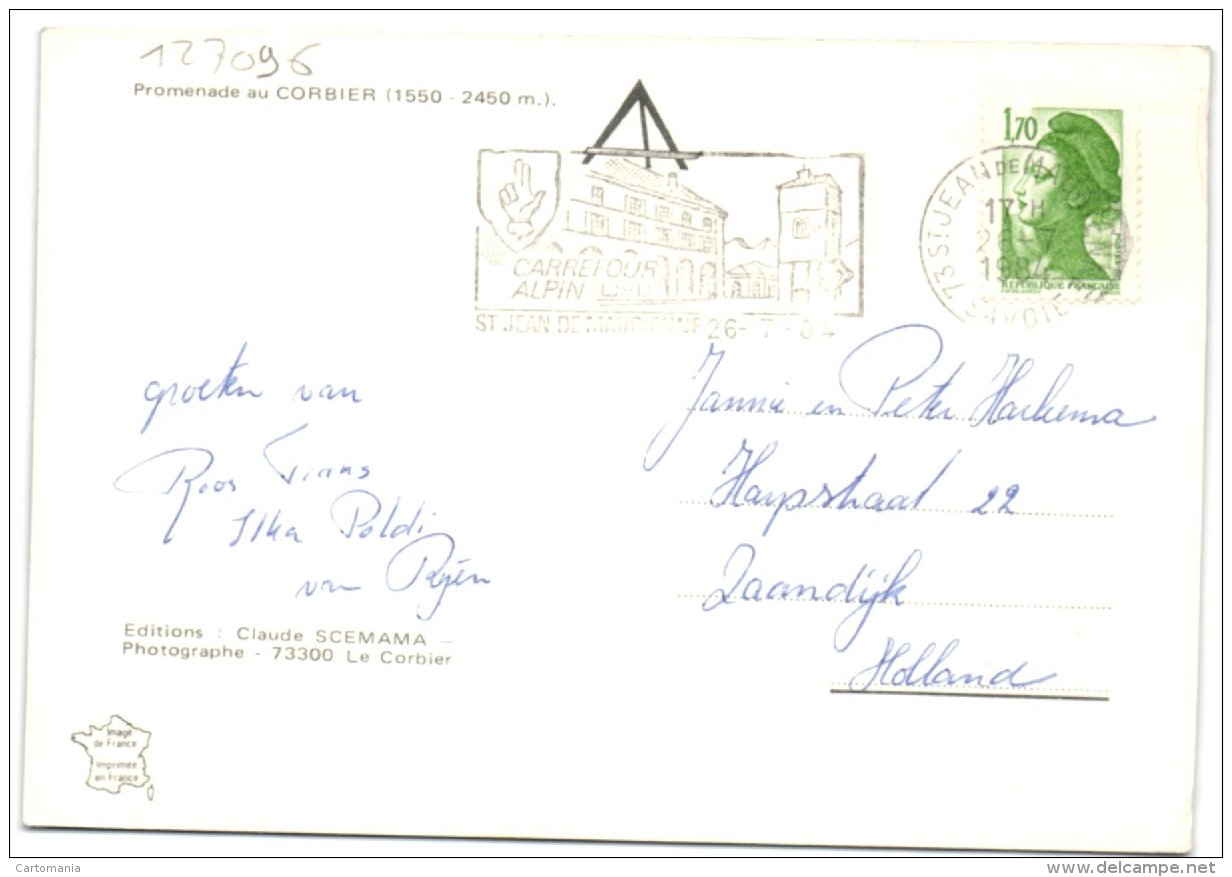 127096
Promenade au CORBIER (1550 - 2450 m.).
1,70
RÉPUBLIQUE FRANÇAISE
73 ST JEAN DE MAURIENNE
17 H
26-7
1984
SAVOIE
CARREFOUR
ALPIN
ST JEAN DE MAURIENNE 26-7-84
groeten van
Roos Frans
Ilka Poldi
van Rijen
Jannie en Peter Harkema
Harpstraat 22
Zaandijk
Holland
Editions : Claude SCEMAMA –
Photographe - 73300 Le Corbier
Image
de France
Imprimée
en France
Cartomania
www.delcampe.net